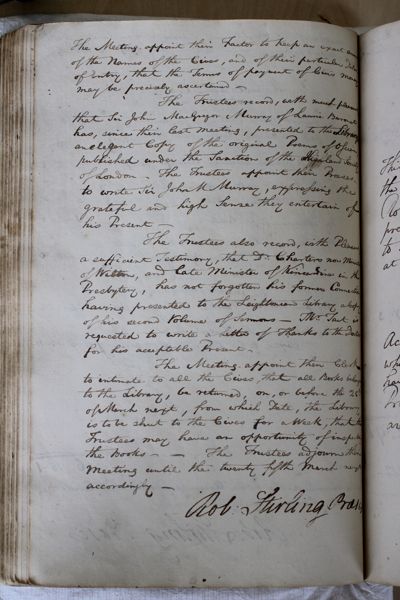 The Meeting appoint their Factor to keep an exact
of the Names of the Cives, and of their particular dates
of entry, that the Terms of payment of Cives may
may be precisely ascertained —
The Trustees record, with much pleasure
that Sir John MacGregor Murray of Lanrick
has, since their last meeting, presented to the Library
an elegant Copy of the original Poems of Ossian
published under the Sanction of the Highland Society
of London — The Trustees appoint their Preses
to write Sir John M. Murray, expressing the
grateful and high Sense they entertain of
his Present
The Trustees also record, with Pleasure
a sufficient Testimony, that Dr. Charters now Minister
of Wilton, and late Minister of Kincardine in this
Presbytery, has not forgotten his former Connection
having presented to the Leightonian Library a copy
of his second Volume of Sermons — Mr. Tait is
requested to write a letter of Thanks to the Doctor
for his acceptable Present.
The Meeting appoint their Clerk
to intimate to all the Cives that all Books belonging
to the Library, be returned, on, or before the 25th
of March next, from which Date, the Library
is to be shut to the Cives for a Week, that the
Trustees may have an opportunity of inspecting
the Books — — The Trustees adjourn their
meeting until the twenty fifth March next
accordingly —
Rob. Stirling Preses